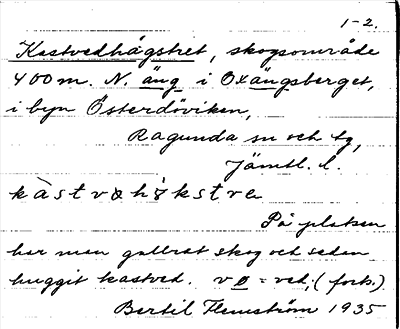 1-2.
Kastvedhägstret, skogsområde
400 m. N. äng i Oxängsberget,
i byn Österdöviken,
Ragunda sn och tg,
Jämtl. l.
kàstvøhö̀kstre
På platsen
har man gallrat skog och sedan
huggit kastved. vø = ved, (fork.)
Bertil Flemström 1935